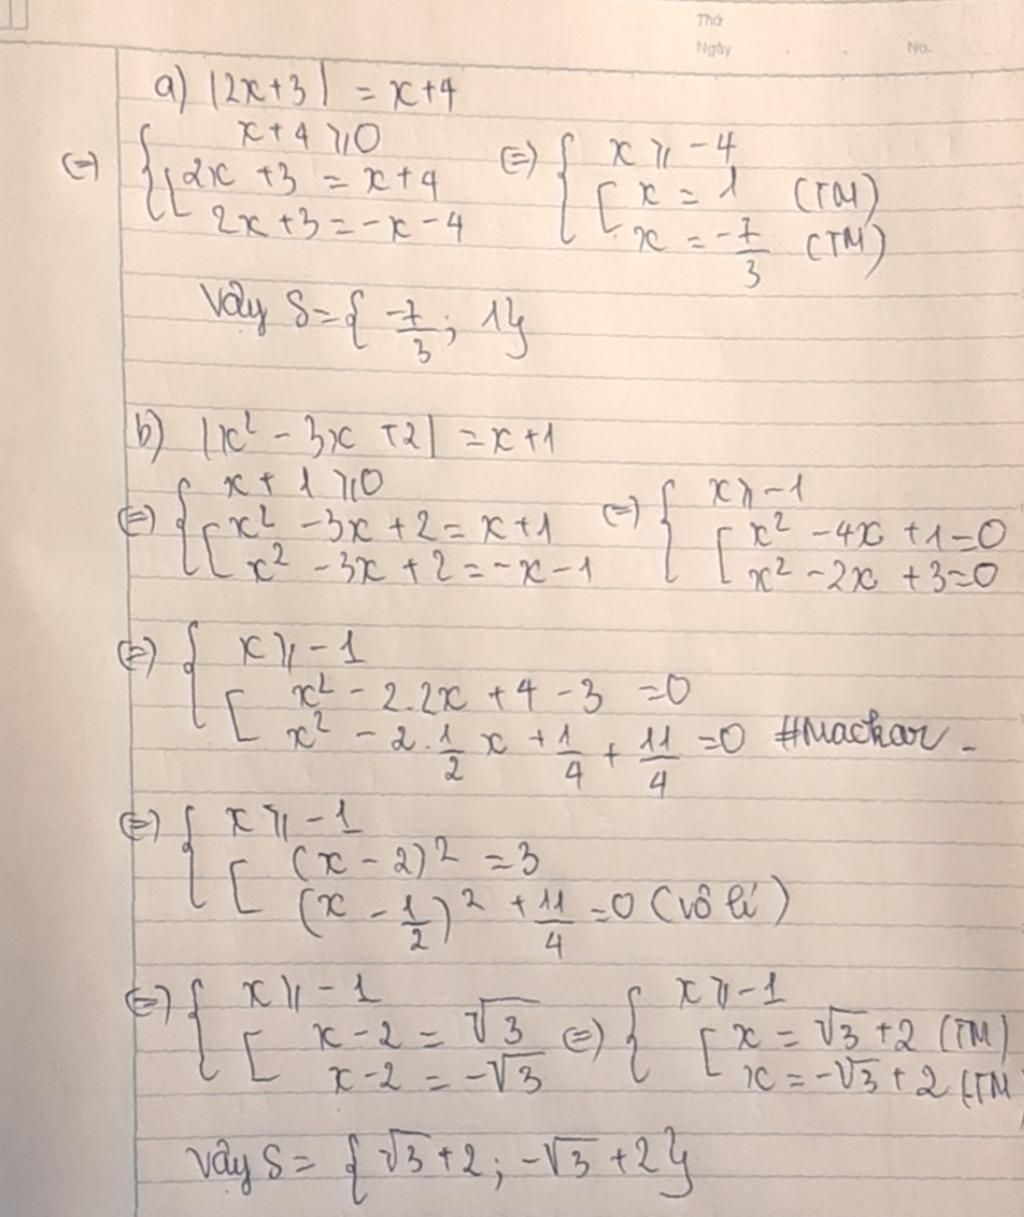 Thứ
Ngày . . No.
a) |2x+3| = x+4
(=) { x+4 ⩾ 0 [ 2x+3 = x+4 2x+3 = -x-4 (=) { x ⩾ -4 [ x = 1 (TM) x = -7/3 (TM)
Vậy S = { -7/3 ; 1}
b) |x² - 3x + 2| = x+1
(=) { x+1 ⩾ 0 [ x² - 3x + 2 = x+1 x² - 3x + 2 = -x-1 (=) { x ⩾ -1 [ x² - 4x + 1 = 0 x² - 2x + 3 = 0
(=) { x ⩾ -1 [ x² - 2.2x + 4 - 3 = 0 x² - 2.1/2 x + 1/4 + 11/4 = 0 #Mackar -
(=) { x ⩾ -1 [ (x-2)² = 3 (x - 1/2)² + 11/4 = 0 (vô lí)
(=) { x ⩾ -1 [ x-2 = √3 x-2 = -√3 (=) { x ⩾ -1 [ x = √3+2 (TM) x = -√3+2 (TM
Vậy S = { √3+2 ; -√3+2}